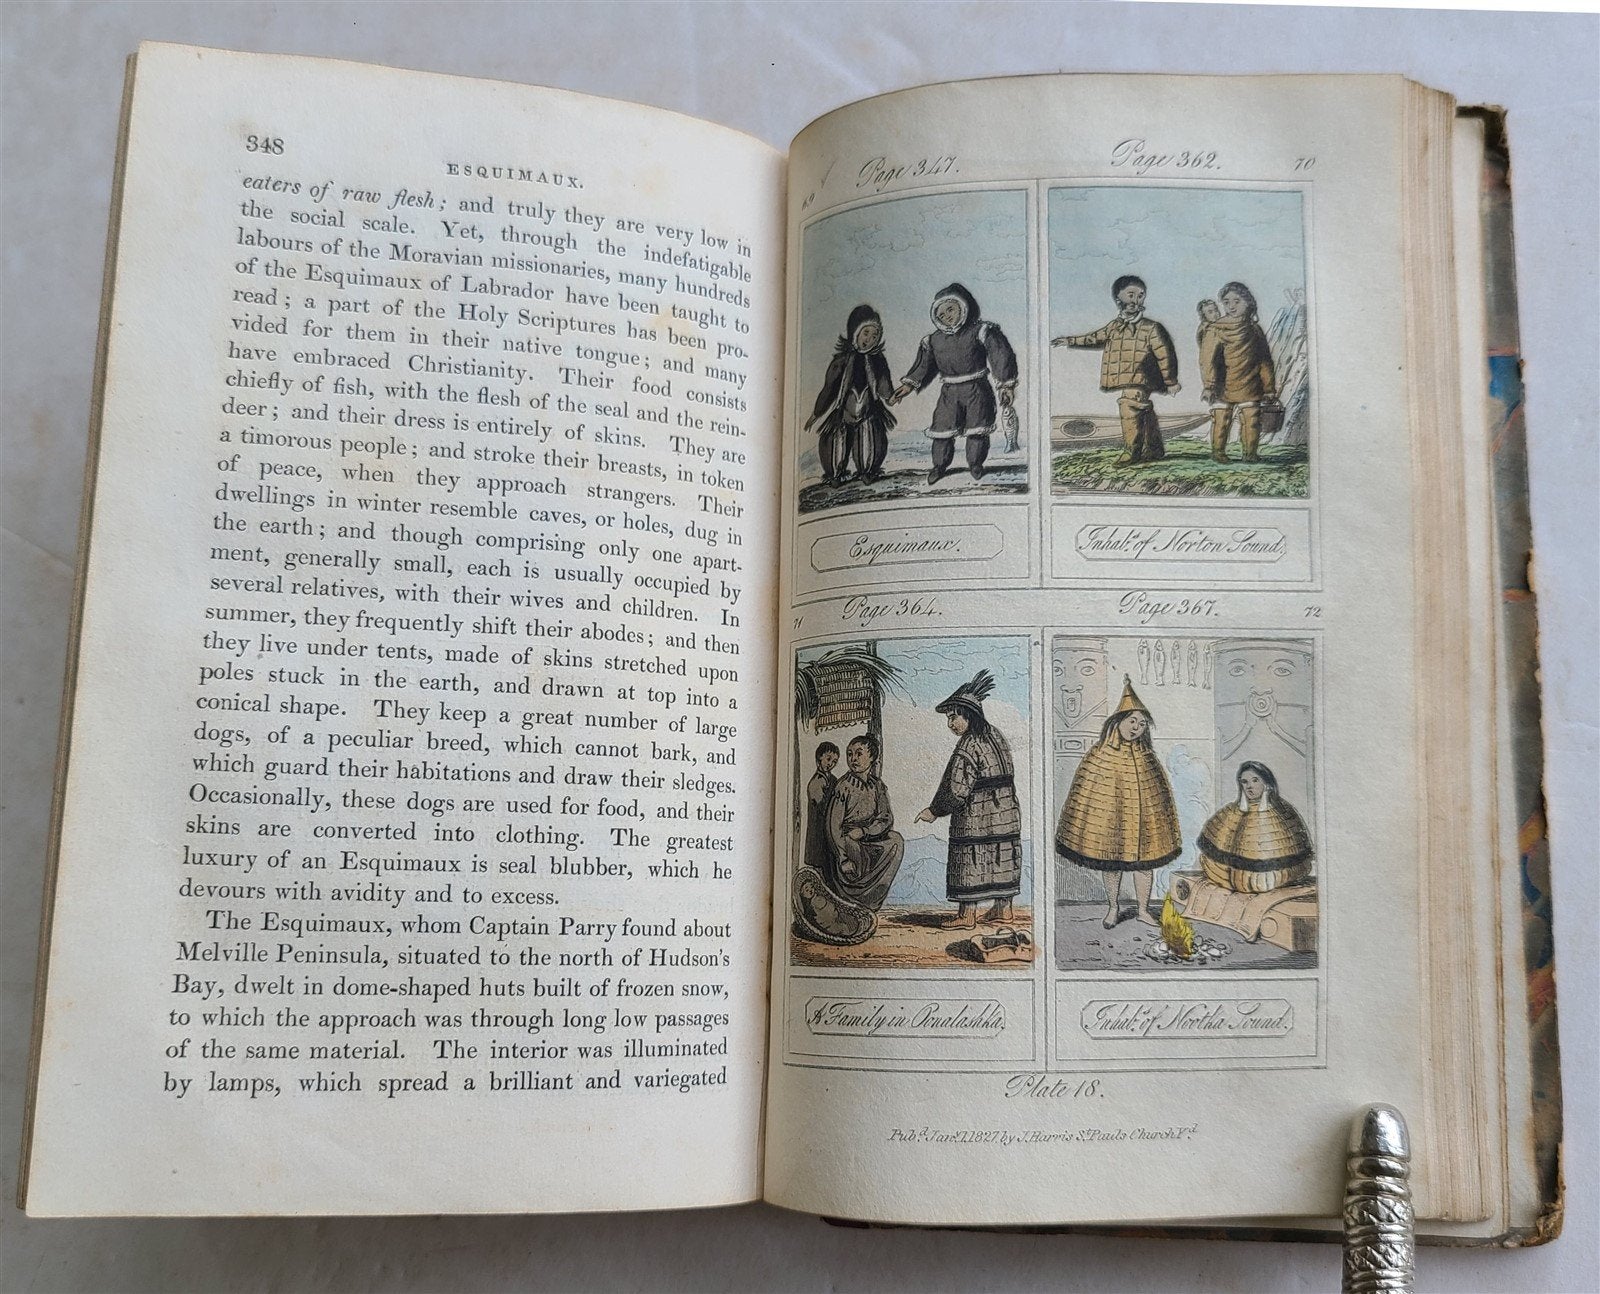 348
ESQUIMAUX.
eaters of raw flesh; and truly they are very low in
the social scale. Yet, through the indefatigable
labours of the Moravian missionaries, many hundreds
of the Esquimaux of Labrador have been taught to
read; a part of the Holy Scriptures has been pro-
vided for them in their native tongue; and many
have embraced Christianity. Their food consists
chiefly of fish, with the flesh of the seal and the rein-
deer; and their dress is entirely of skins. They are
a timorous people; and stroke their breasts, in token
of peace, when they approach strangers. Their
dwellings in winter resemble caves, or holes, dug in
the earth; and though comprising only one apart-
ment, generally small, each is usually occupied by
several relatives, with their wives and children. In
summer, they frequently shift their abodes; and then
they live under tents, made of skins stretched upon
poles stuck in the earth, and drawn at top into a
conical shape. They keep a great number of large
dogs, of a peculiar breed, which cannot bark, and
which guard their habitations and draw their sledges.
Occasionally, these dogs are used for food, and their
skins are converted into clothing. The greatest
luxury of an Esquimaux is seal blubber, which he
devours with avidity and to excess.
The Esquimaux, whom Captain Parry found about
Melville Peninsula, situated to the north of Hudson's
Bay, dwelt in dome-shaped huts built of frozen snow,
to which the approach was through long low passages
of the same material. The interior was illuminated
by lamps, which spread a brilliant and variegated
69 Page 347.
Page 362. 70
Esquimaux.
Inhabts. of Norton Sound.
71 Page 364.
Page 367. 72
A Family in Oonalashka.
Inhabts. of Nootka Sound.
Plate 18.
Pubd. Jany. 1, 1827, by J. Harris St. Pauls Church Yd.